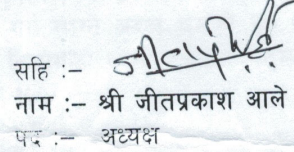 सहि :-
नाम :- श्री जीतप्रकाश आले
पद :- अध्यक्ष